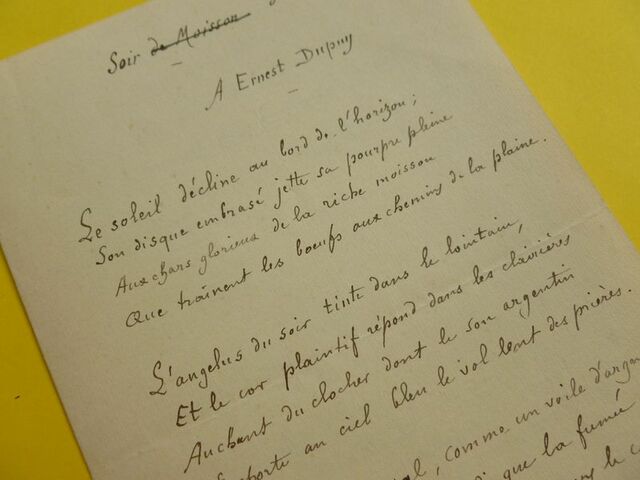 Soir de Moisson
A Ernest Dupuy
Le soleil décline au bord de l'horizon;
Son disque embrasé jette sa pourpre pleine
Aux chars glorieux de la riche moisson
Que traînent les boeufs aux chemins de la plaine.
L'angelus du soir tinte dans le lointain,
Et le cor plaintif répond dans les clairières
Au chant du clocher dont le son argentin
au ciel bleu le vol lent des prières.
comme un voile d'argen
que la fumée